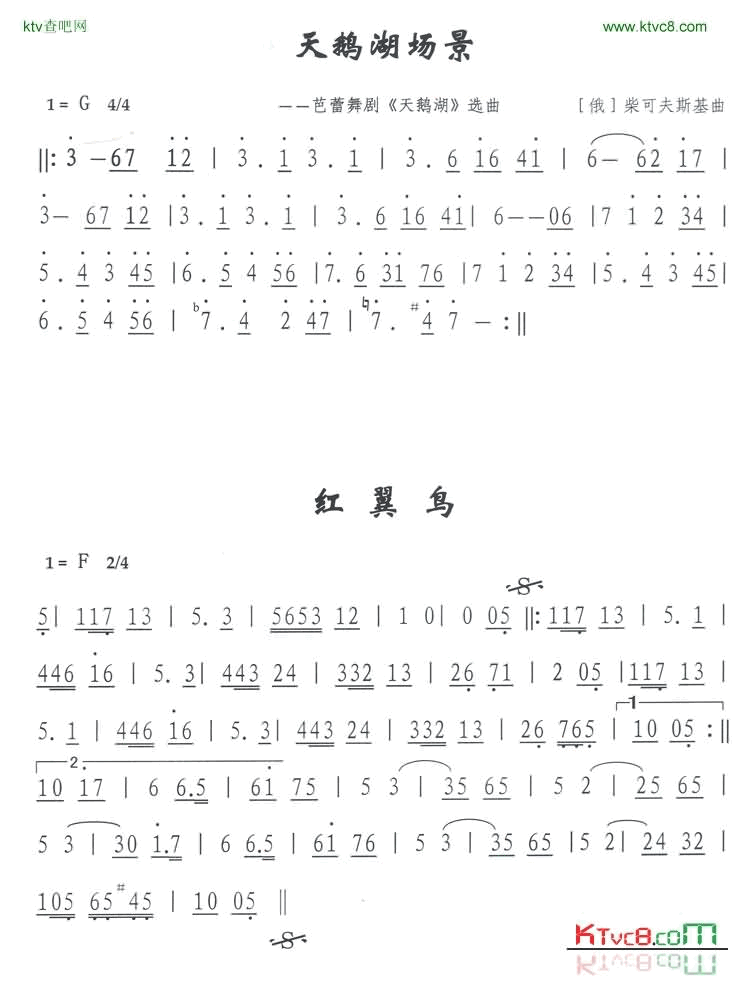 ktv查吧网
www.ktvc8.com
天鹅湖场景
1= G 4/4 ——芭蕾舞剧《天鹅湖》选曲 [俄]柴可夫斯基曲
||: 3 – 67 12 | 3 . 1 3 . 1 | 3 . 6 16 41 | 6 – 62 17 |
3 – 67 12 | 3 . 1 3 . 1 | 3 . 6 16 41 | 6 – – 06 | 7 1 2 34 |
5 . 4 3 45 | 6 . 5 4 56 | 7 . 6 31 76 | 7 1 2 34 | 5 . 4 3 45 |
6 . 5 4 56 | ♭7 . 4 2 47 | ♮7 . #4 7 – :||
红翼鸟
1= F 2/4
5 | 117 13 | 5. 3 | 5653 12 | 1 0 | 0 05 ||: 117 13 | 5. 1 |
446 16 | 5. 3 | 443 24 | 332 13 | 26 71 | 2 05 | 117 13 |
5. 1 | 446 16 | 5. 3 | 443 24 | 332 13 | 26 765 | 1 10 05 :||
2. 10 17 | 6 6.5 | 61 75 | 5 3 | 35 65 | 5 2 | 25 65 |
5 3 | 30 1.7 | 6 6.5 | 61 76 | 5 3 | 35 65 | 5 2 | 24 32 |
105 65#45 | 10 05 ||
KTVC8.COM